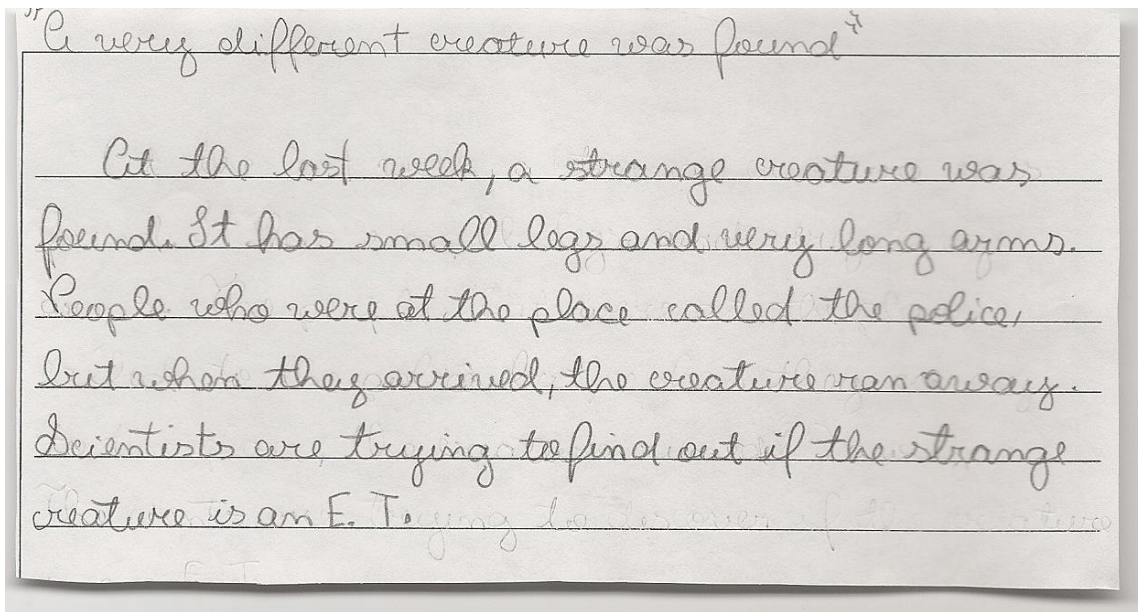 "A very different creature was found"
At the last week, a strange creature was
found. It has small legs and very long arms.
People who were at the place called the police,
but when they arrived, the creature ran away.
Scientists are trying to find out if the strange
creature is an E. T.